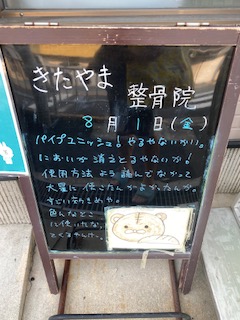 きたやま
整骨院
8月1日(金)
パイプユニッシュ!やるやないかい。
においが消えとるやないか!
使用方法よう読んでなかって
大量に使こたんがよかったんか。
すごい効きめや。
色んなとこ
に使いたな。
てくるやんけ。